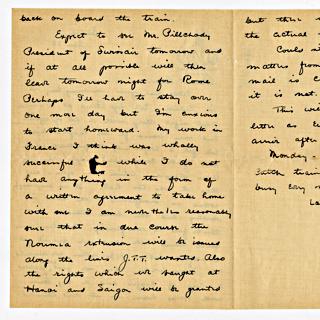 back on board the train.
Expect to see Mr. Pillchady
President of Surinair tomorrow and
if at all possible will then
leave tomorrow night for Rome
Perhaps I'll have to stay over
one more day but I'm anxious
to start homeward. My work in
France I think was wholly
successful while I do not
have anything in the form of
a written agreement to take home
with me I am nevertheless reasonably
sure that in due course the
Noumia extension will be issued
along the lines J.T.T. wanted. Also
the rights which we sought at
Hanoi and Saigon will be granted
but this
the actual
Could
matters from
mail is
it is not.
This will
letter as
arrive after
Monday -
Catch train
busy day
La